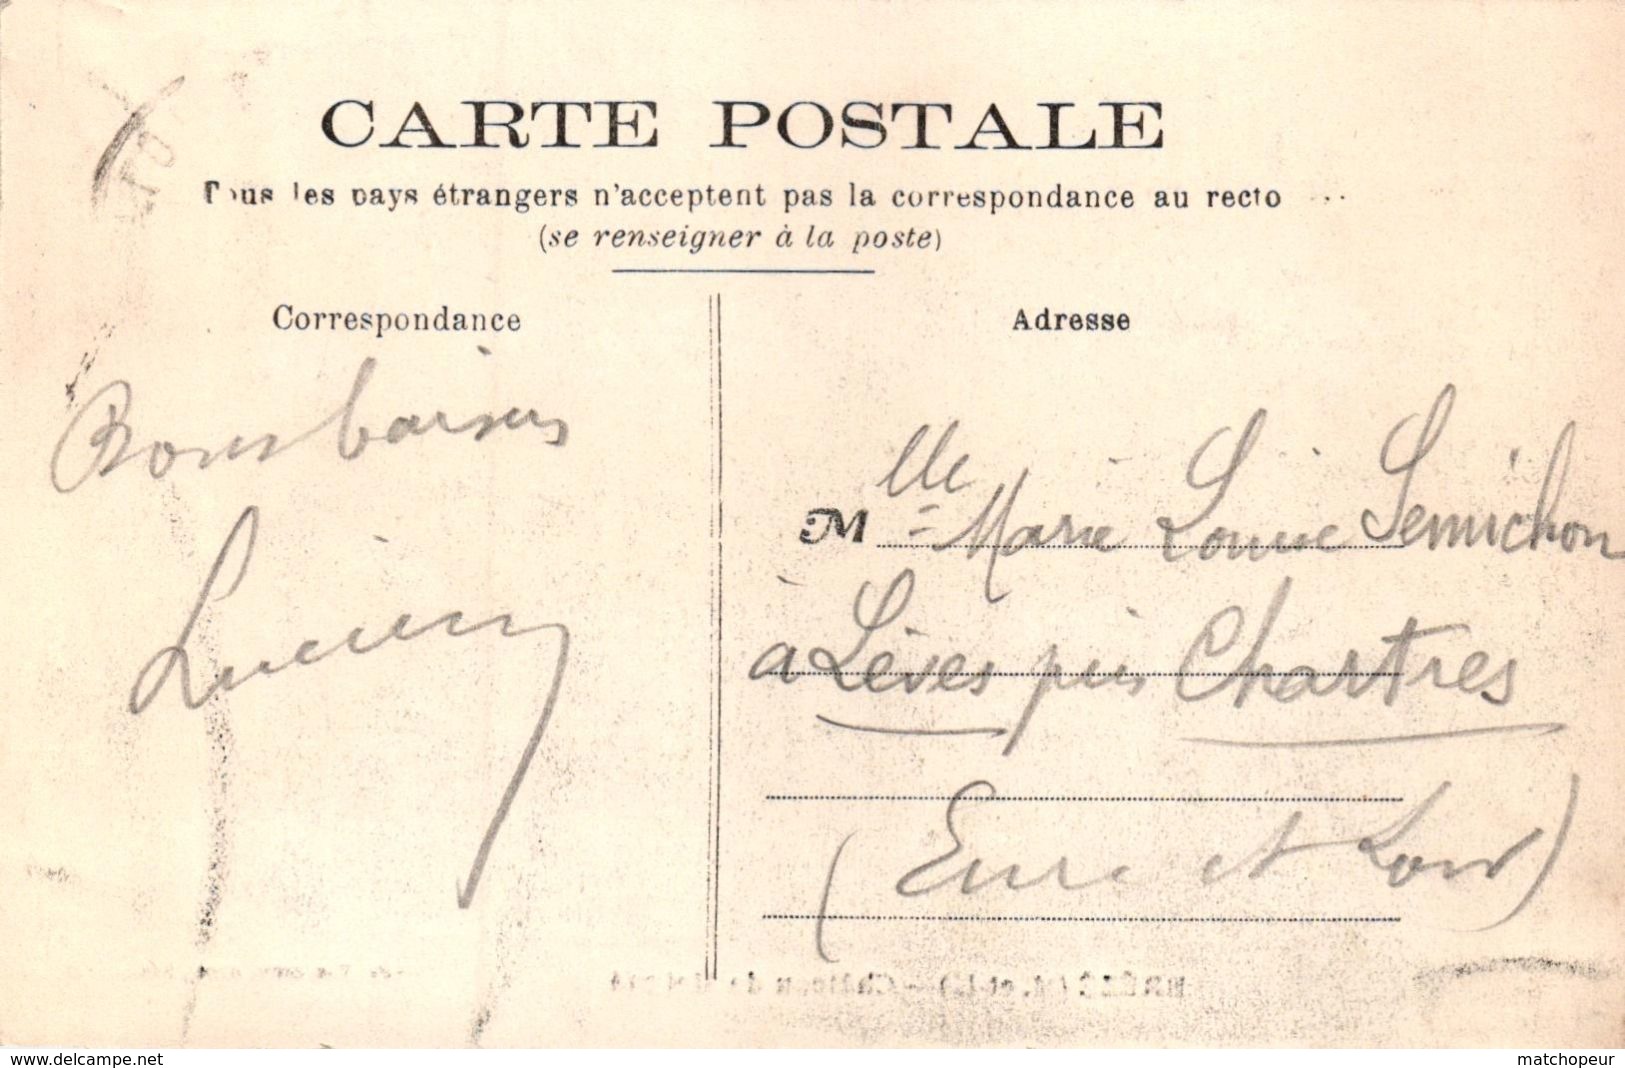 CARTE POSTALE
Tous les pays étrangers n'acceptent pas la correspondance au recto
(se renseigner à la poste)
Correspondance
Bons baisers
Lucien
Adresse
Mlle Marie Louise Semichon
à Lèves près Chartres
(Eure et Loir)
www.delcampe.net
matchopeur